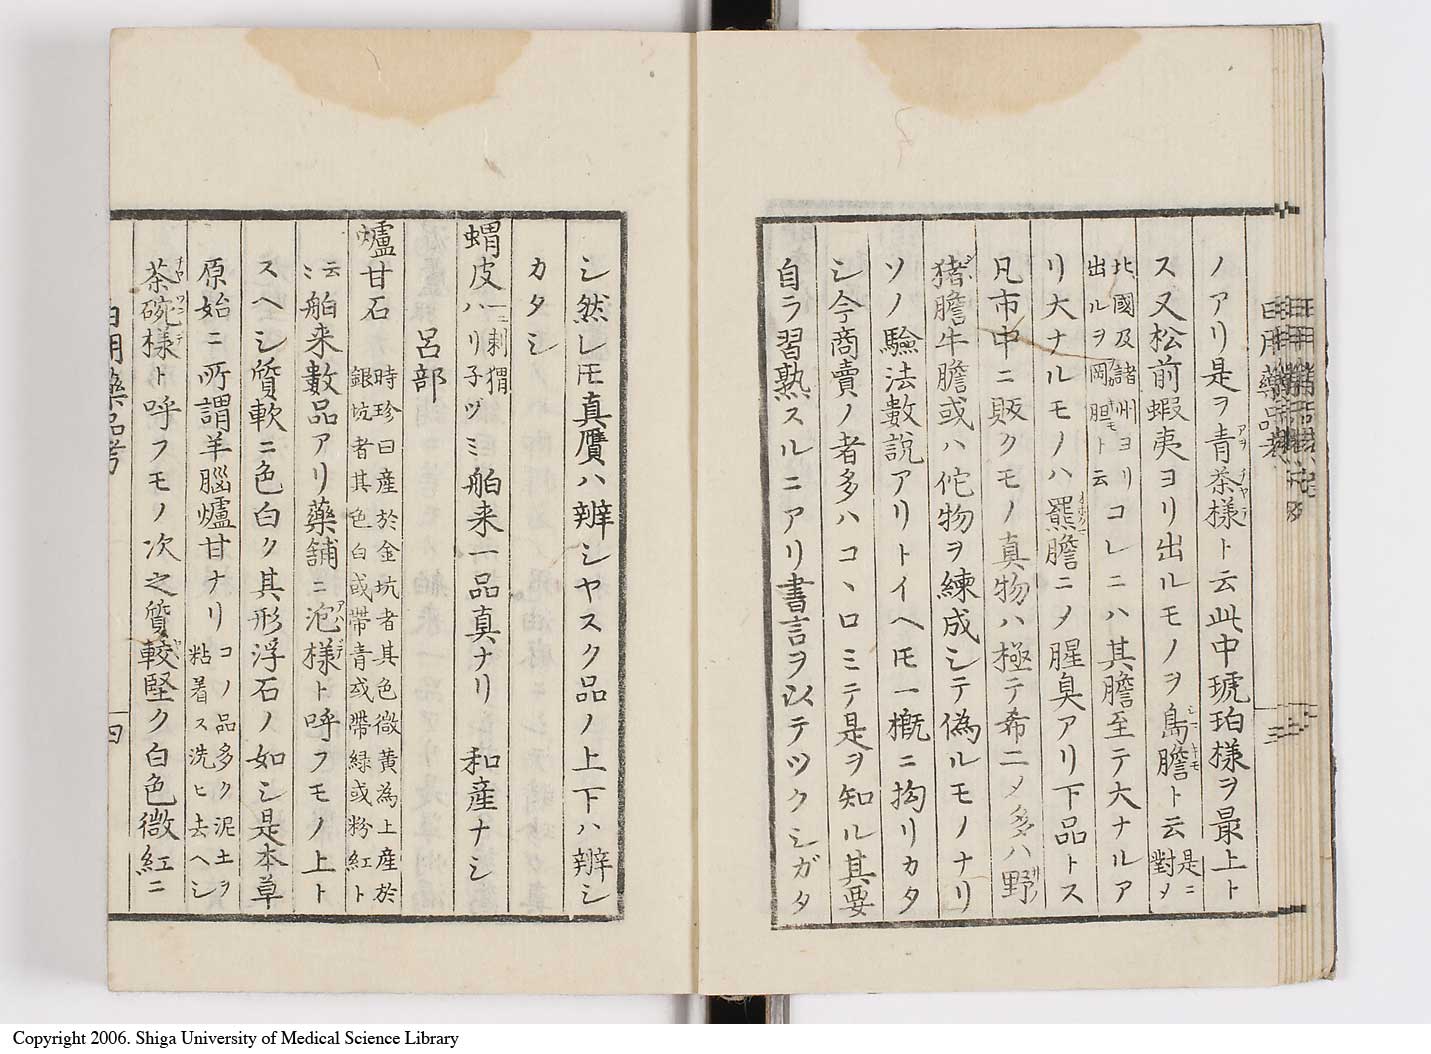 日用藥品考
ノアリ是ヲ青茶様ト云此中琥珀様ヲ最上ト
アヲ チヤデ
ス又松前蝦夷ヨリ出ルモノヲ島膽ト云 是ニ對〆
北國及諸州ヨリ出ルヲ岡胆ト云 コレニハ其膽至テ大ナルア
リ大ナルモノハ羆膽ニ〆腥臭アリ下品トス
凡市中ニ販クモノ真物ハ極テ希ニ〆多ハ野
猪膽牛膽或ハ佗物ヲ練成シテ偽ルモノナリ
ソノ驗法数説アリトイヘ𪜈一概ニ拘リカタ
シ今商賣ノ者多ハコヽロミテ是ヲ知ル其要
自ラ習熟スルニアリ書言ヲ以テツクシガタ
シ然レ𪜈真贋ハ辨シヤスク品ノ上下ハ辨シ
カタシ
蝟皮ハリ子ヅミ 一ニ刺猬 舶来一品真ナリ 和産ナシ
呂部
爐甘石 時珍曰産於金坑者其色微黄為上産於
銀坑者其色白或帶青或帶緑或粉紅ト
云ミ 舶来數品アリ藥舗ニ泡様ト呼フモノ上ト
アハデ
スヘシ質軟ニ色白ク其形浮石ノ如シ是本草
原始ニ所謂羊腦爐甘ナリ コノ品多ク泥土ヲ
粘着ス洗ヒ去ヘシ
茶碗様ト呼フモノ次之質較堅ク白色微紅ニ
チヤワンデ
日用藥品考
四
Copyright 2006. Shiga University of Medical Science Library